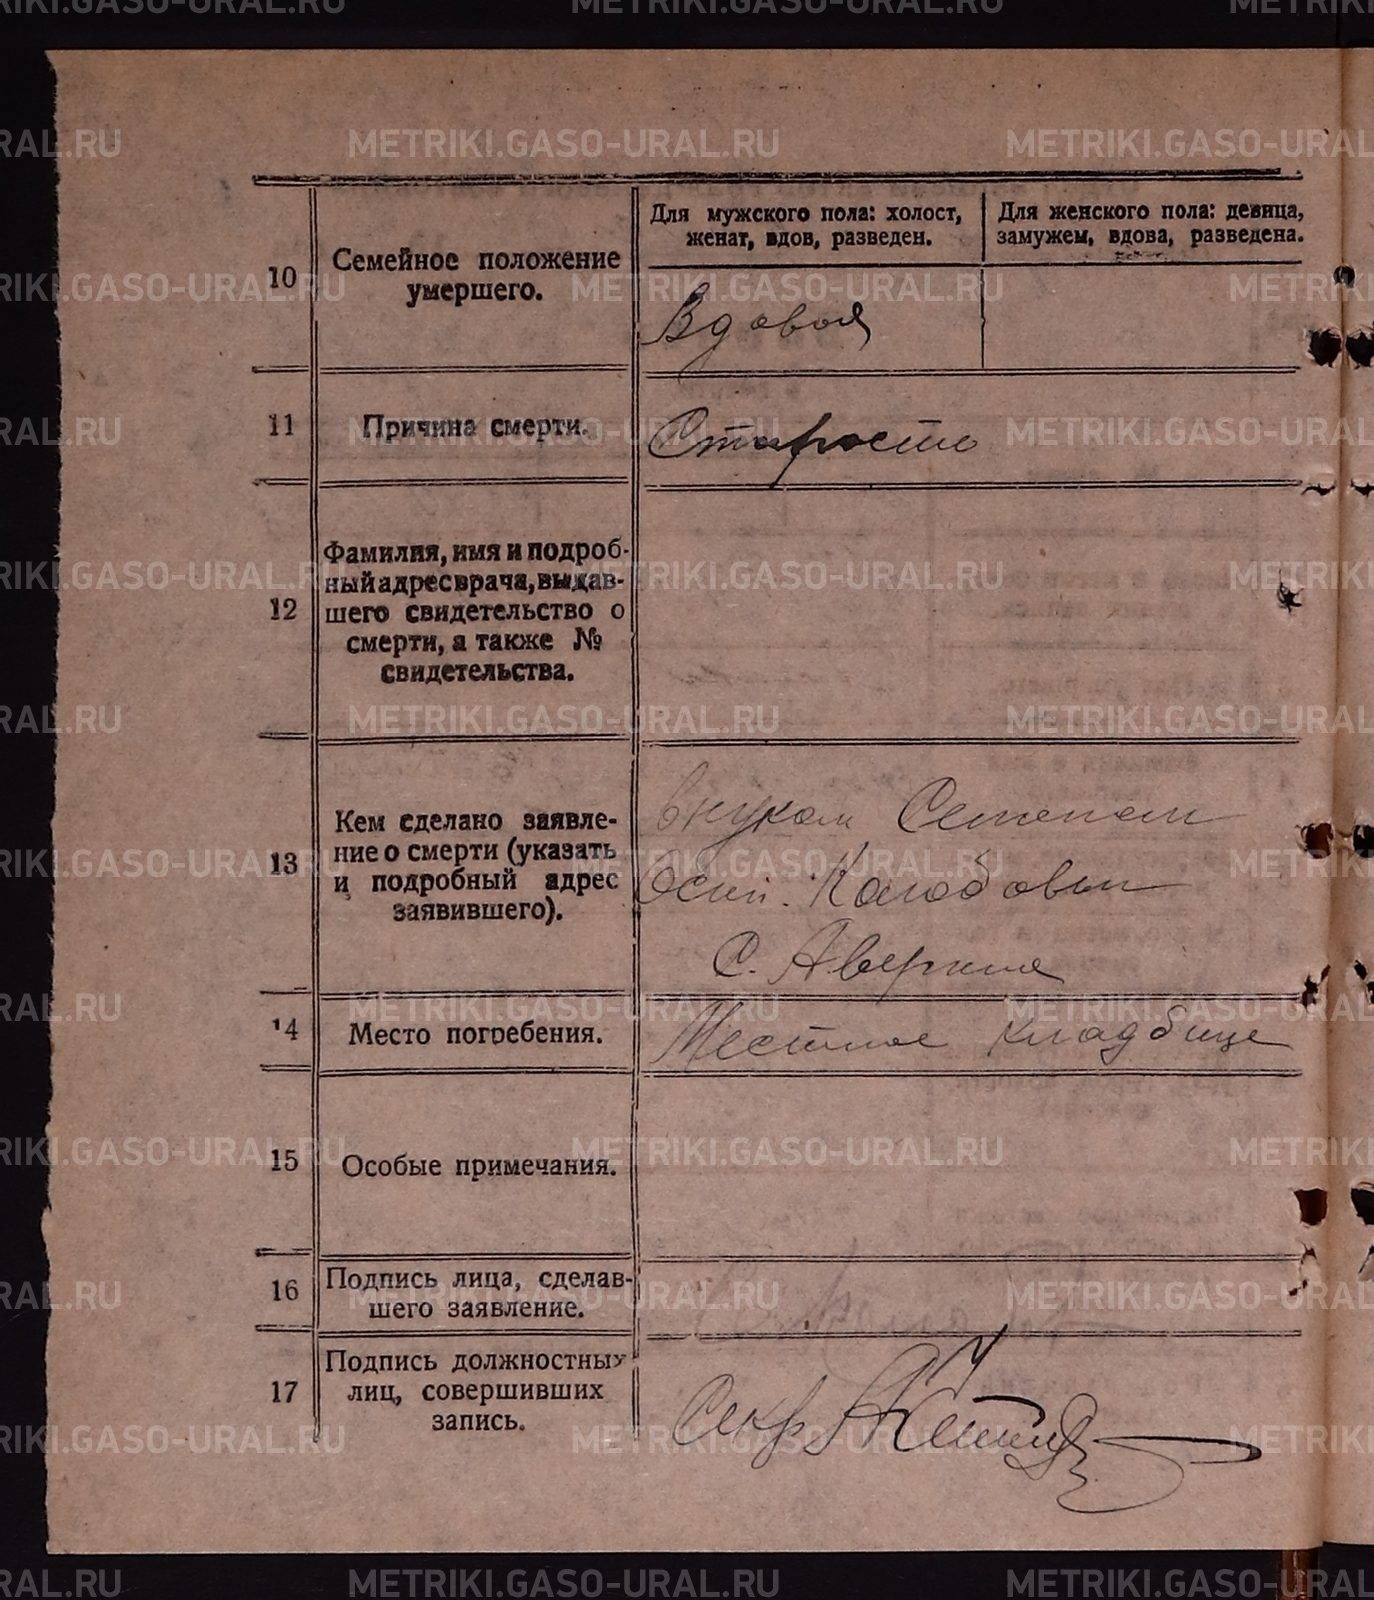 Для мужского пола: холост, женат, вдов, разведен.
Для женского пола: девица, замужем, вдова, разведена.
10 Семейное положение умершего.
Вдовой
11 Причина смерти.
Старость
12
Фамилия, имя и подроб-
ный адрес врача, выдав-
шего свидетельство о
смерти, а также №
свидетельства.
13
Кем сделано заявле-
ние о смерти (указать
и подробный адрес
заявившего).
внуком Семеном
Осип.
С. Аверино
14 Место погребения.
Местное кладбище
15 Особые примечания.
16
Подпись лица, сделав-
шего заявление.
17
Подпись должностных
лиц, совершивших
запись.
Секр
METRIKI.GASO-URAL.RU